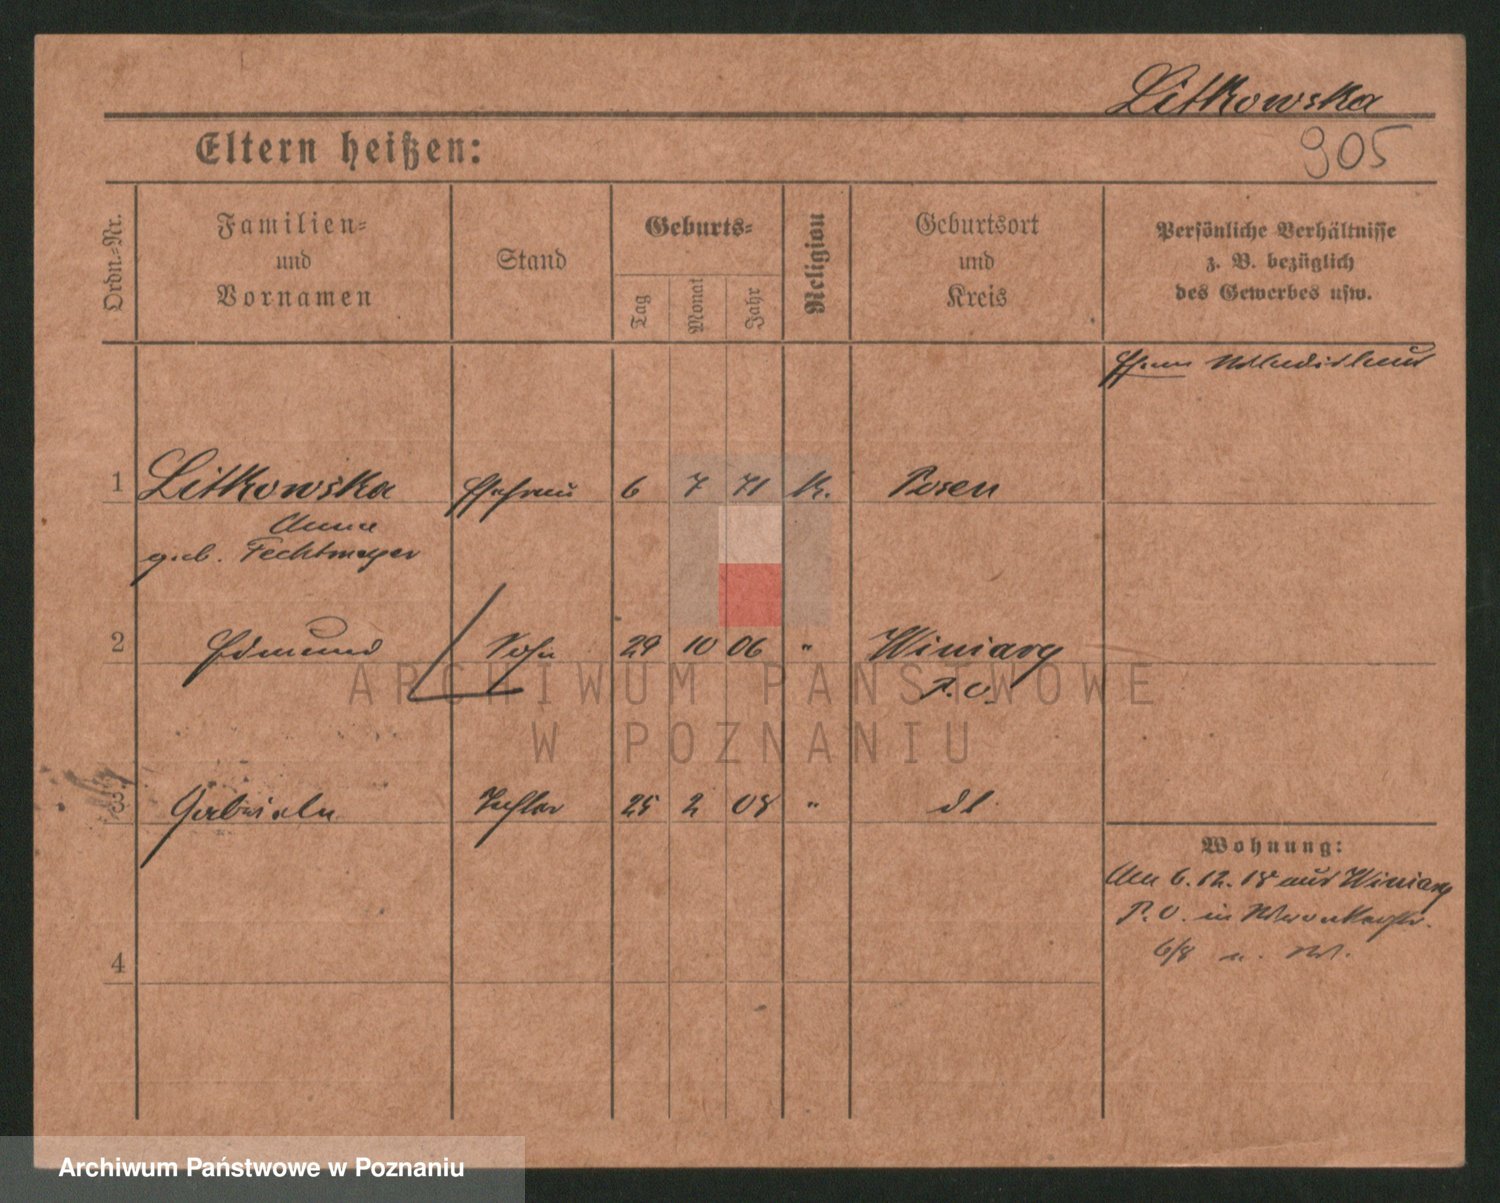 Litkowska
905
Eltern heißen:
Ordn.-Nr.
Familien-
und
Vornamen
Stand
Geburts-
Tag
Monat
Jahr
Religion
Geburtsort
und
Kreis
Persönliche Verhältnisse
z. B. bezüglich
des Gewerbes usw.
1 Litkowska Ehefrau 6 7 71 k. Posen
Anna
geb. Fechtmeyer
2 Edmund Sohn 29 10 06 " Winiary
P. O.
3 Gabriele Tochter 25 2 08 " dt
Wohnung:
Am 6.12.18 aus Winiary
P. O. in
6/8
4
ARCHIWUM PAŃSTWOWE
W POZNANIU
Archiwum Państwowe w Poznaniu